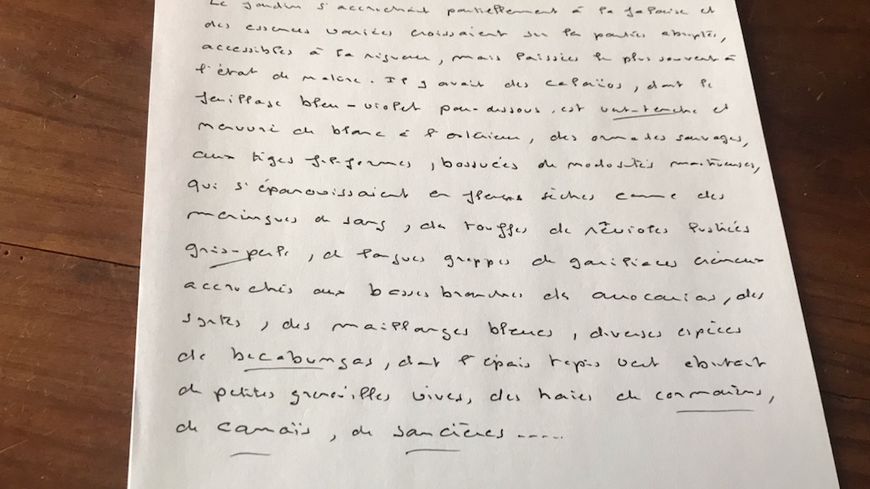 Le jardin s'accrochait partiellement à la falaise et
des essences variées croissaient sur les parties abruptes,
accessibles à la rigueur, mais laissées le plus souvent à
l'état de nature. Il y avait des calaïos, dont le
feuillage bleu-violet par-dessous, est vert-tendre et
nervuré de blanc à l'extérieur, des ormades sauvages,
aux tiges filiformes, bossuées de nodosités monstrueuses,
qui s'épanouissaient en fleurs sèches comme des
meringues de sang, des touffes de rêviole lustrées
gris-perle, de longues grappes de garillias crémeux
accrochés aux basses branches des araucarias, des
syrtes, des maillanges bleues, diverses espèces
de becabunga, dont l'épais tapis vert abritait
de petites grenouilles vives, des haies de cormarin,
de canaïs, de sensiaires